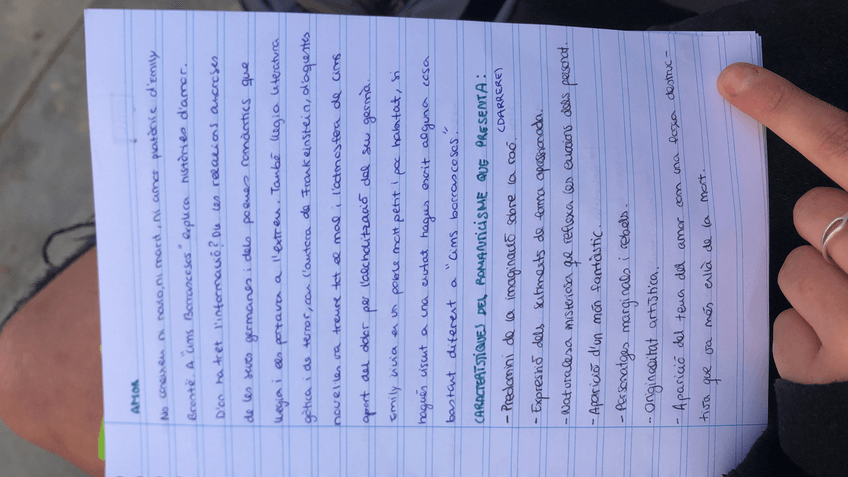 AMOR
No coneixen ni novio, ni marit, ni amor platònic d'Emily
Brontë. A "Cims Borrascosos" explica històries d'amor.
D'on ha tret l'informació? De les relacions amoroses
de les seves germanes i dels poemes romàntics que
llegia i els portava a l'extrem. També llegia literatura
gòtica i de terror, com l'autora de Frankeinstein, d'aquestes
novel·les va treure tot el mal i l'atmosfera de cims
apart del dolor per l'alcholització del seu germà.
Emily vivia en un poble molt petit i poc habitat, si
hagués viscut a una ciutat hagués escrit alguna cosa
bastant diferent a "cims borrascosos".
CARACTERÍSTIQUES DEL ROMANTICISME QUE PRESENTA:
(DARRERE)
- Predomini de la imaginació sobre la raó.
- Expressió dels sentiments de forma apassionada.
- Naturalesa misteriosa qe reflexa les emocions dels personat.
- Aparició d'un món fantàstic.
- Personatges marginals i rebels.
- Originalitat artística.
- Aparició del tema del amor com una força destruc-
tiva que va més enllà de la mort.